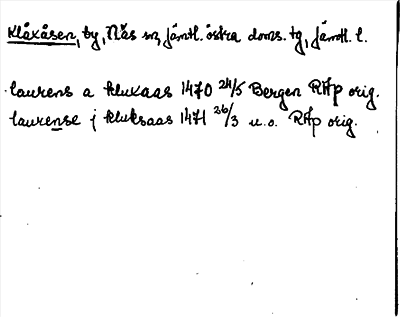 Klåxåsen, by, Näs sn, Jämtl. östra doms. tg, Jämtl. l.
laurens a kluxaas 1470 24/5 Bergen RAp orig.
laurense j kluksaas 1471 26/3 u.o. RAp orig.